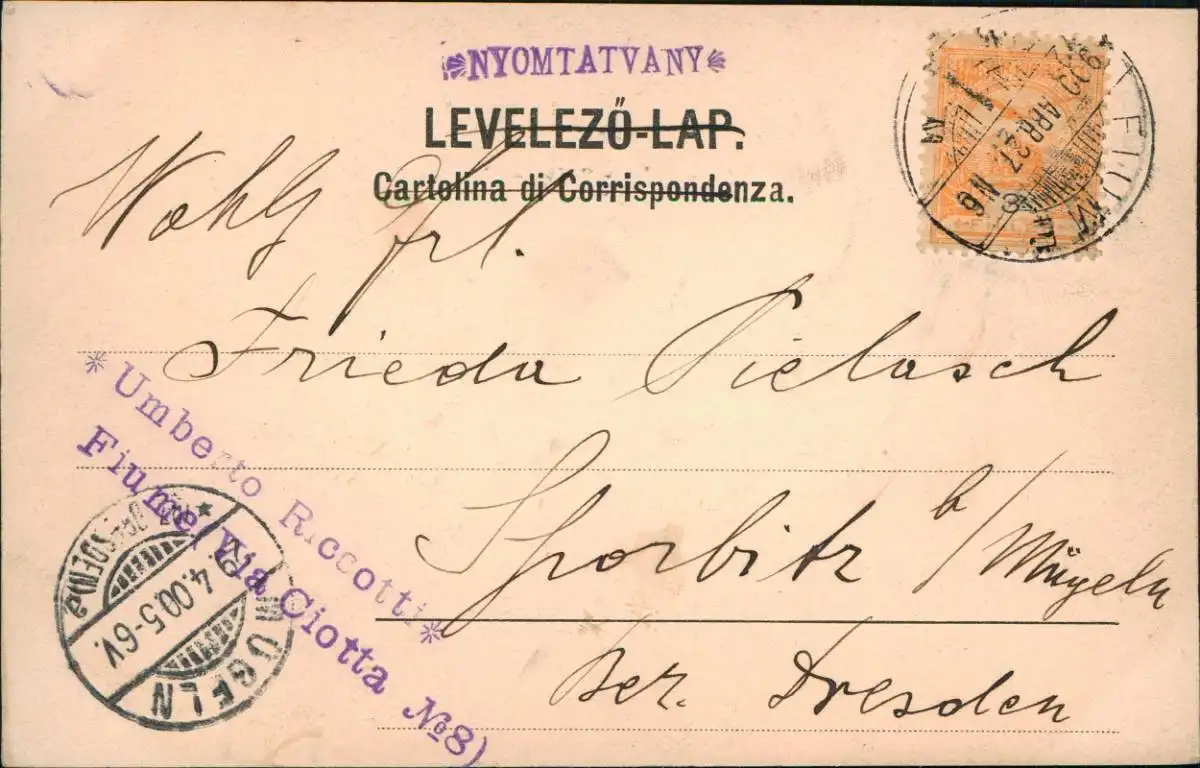 NYOMTATVANY
LEVELEZŐ-LAP.
Cartolina di Corrispondenza.
Wohlg. Frl.
Frieda Pielasch
Sporbitz b/Mügeln
Bez. Dresden
*Umberto Riccotti*
Fiume, Via Ciotta №8)
FIUME
900 APR. 27. N6
MÜGELN
4.00.5-6V.
BZ. DRESDEN. a